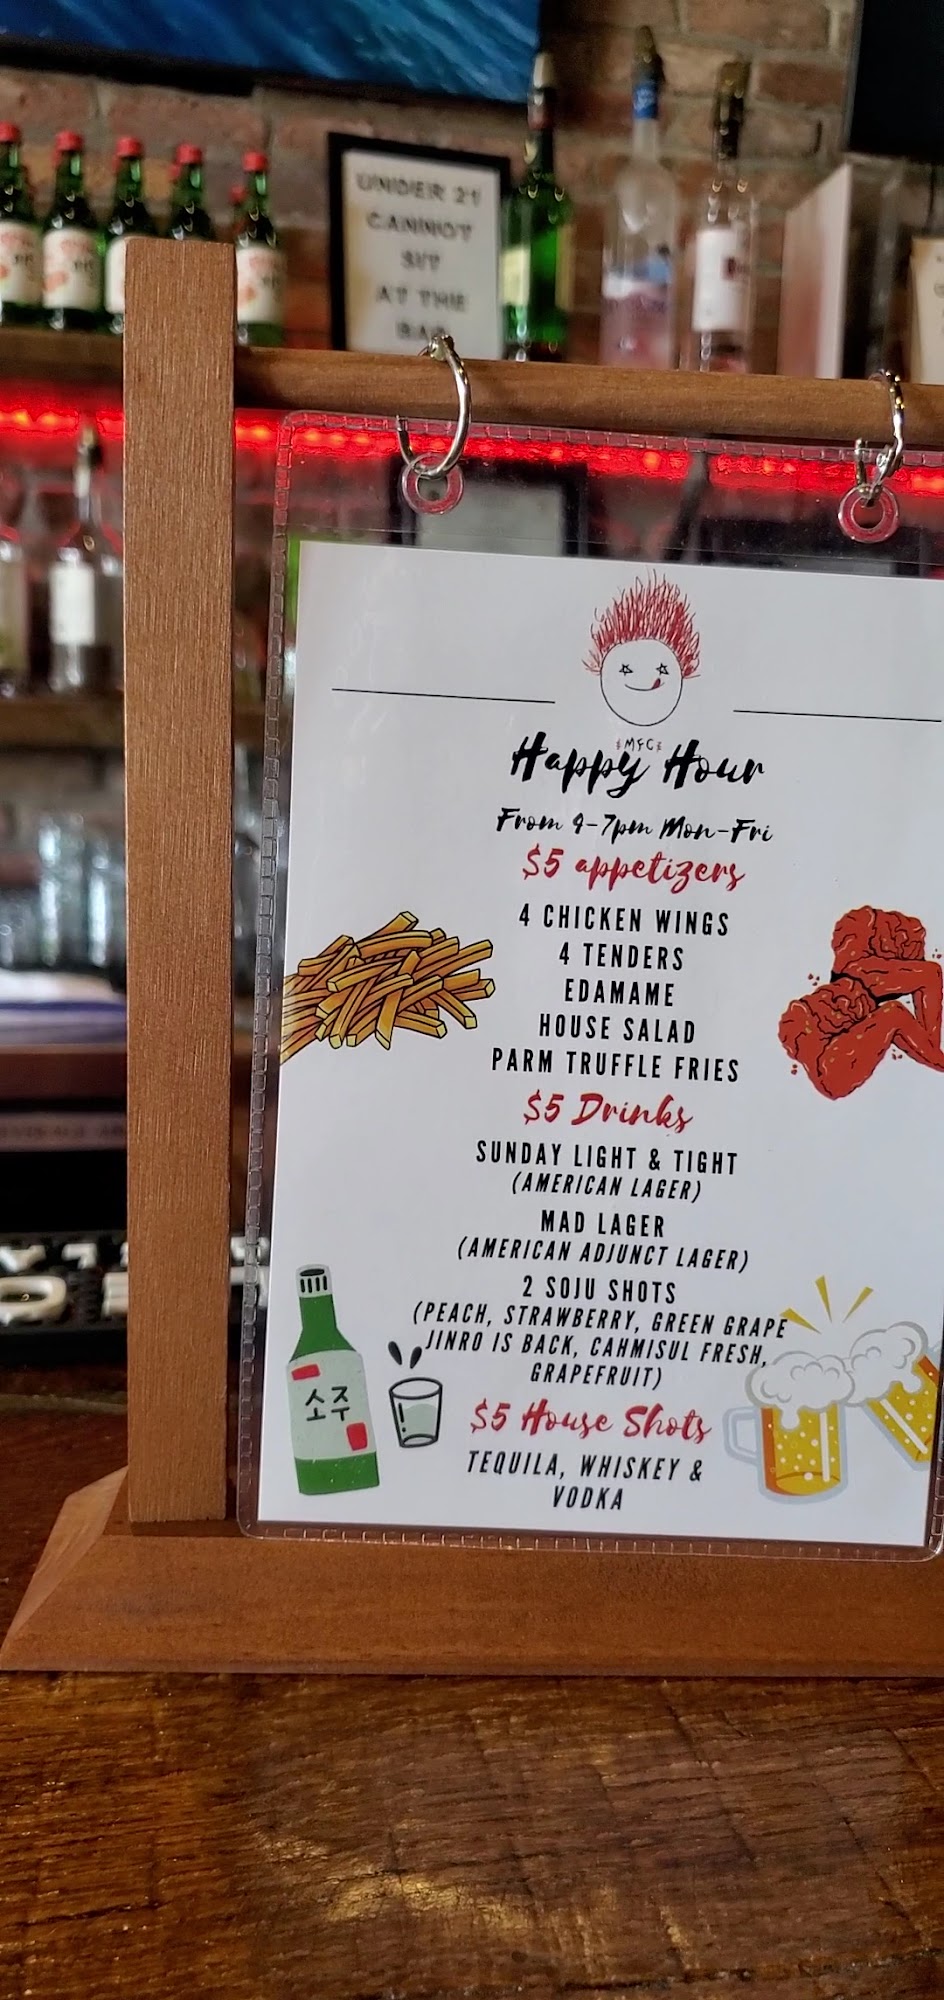 UNDER 21
CANNOT
SIT
AT THE
BAR
MFC
Happy Hour
From 4-7pm Mon-Fri
$5 appetizers
4 CHICKEN WINGS
4 TENDERS
EDAMAME
HOUSE SALAD
PARM TRUFFLE FRIES
$5 Drinks
SUNDAY LIGHT & TIGHT
(AMERICAN LAGER)
MAD LAGER
(AMERICAN ADJUNCT LAGER)
2 SOJU SHOTS
(PEACH, STRAWBERRY, GREEN GRAPE
JINRO IS BACK, CAHMISUL FRESH,
GRAPEFRUIT)
소주
$5 House Shots
TEQUILA, WHISKEY &
VODKA